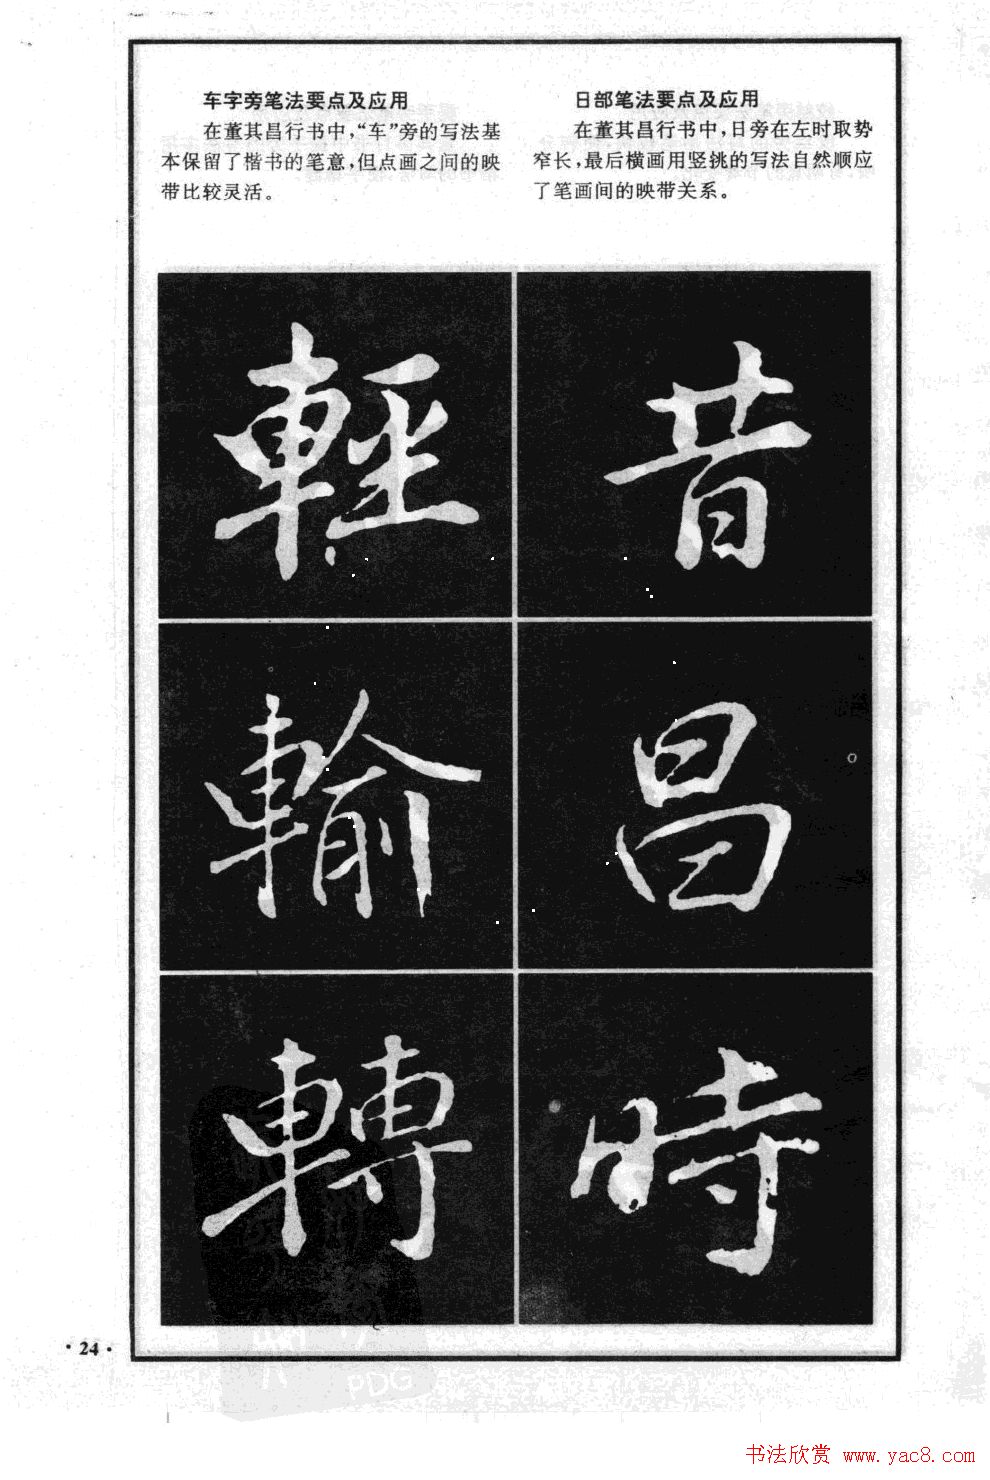 车字旁笔法要点及应用
在董其昌行书中，“车”旁的写法基
本保留了楷书的笔意，但点画之间的映
带比较灵活。
日部笔法要点及应用
在董其昌行书中，日旁在左时取势
窄长，最后横画用竖挑的写法自然顺应
了笔画间的映带关系。
輕
昔
輸
昌
轉
時
·24·
PDG
书法欣赏 www.yac8.com